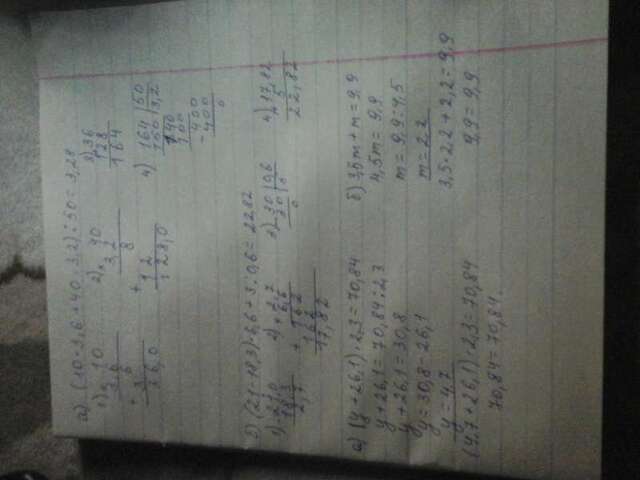 а) (10 · 3,6 + 40 · 3,2) : 50 = 3,28
1) × 10
3,6
+ 6
3
36,0
2) × 40
3,2
+ 8
12
128,0
3) 36
128
164
4) 164 | 50
150 | 3,2
140
100
- 400
400
0
б) (21 - 18,3) · 6,6 + 3 : 0,6 = 22,82
1) - 21,0
18,3
2,7
2) × 2,7
6,6
+ 162
162
17,82
3) - 30 | 0,6
30 | 5
0
4) + 17,82
5
22,82
а) (y + 26,1) · 2,3 = 70,84
y + 26,1 = 70,84 : 2,3
y + 26,1 = 30,8
y = 30,8 - 26,1
y = 4,7
(4,7 + 26,1) · 2,3 = 70,84
70,84 = 70,84.
б) 3,5m + m = 9,9
4,5m = 9,9
m = 9,9 : 4,5
m = 2,2
3,5 · 2,2 + 2,2 = 9,9
9,9 = 9,9